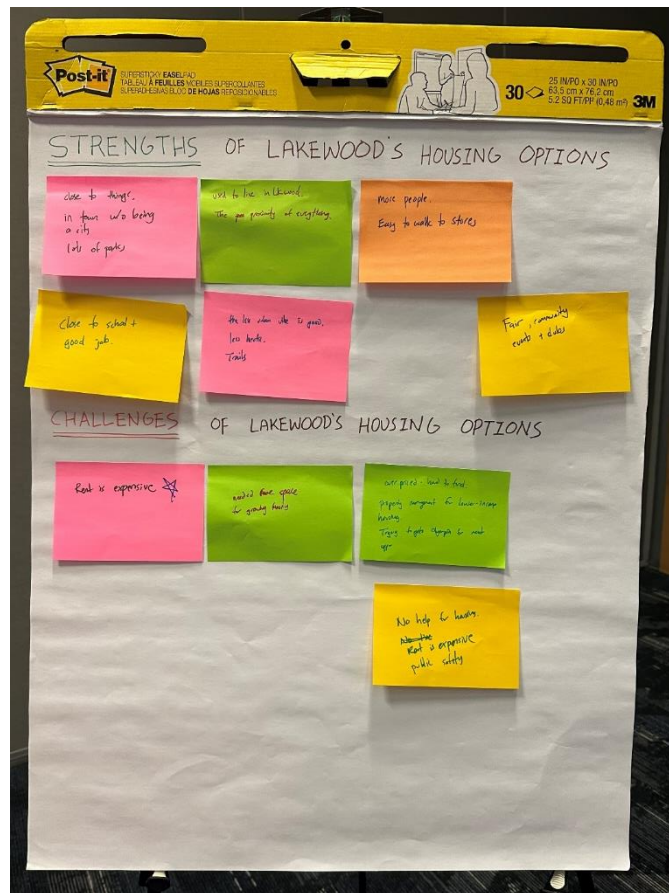 Post-it
SUPERSTICKY EASELPAD
TABLEAU À FEUILLES MOBILES SUPERCOLLANTES
SUPERADHESIVAS BLOC DE HOJAS REPOSICIONABLES
30
25 IN/PO x 30 IN/PO
63,5 cm x 76,2 cm
5.2 SQ FT/PP (0,48 m²)
3M
STRENGTHS OF LAKEWOOD'S HOUSING OPTIONS
close to things.
in town w/o being
a city
lots of parks
used to live in Lakewood.
The proximity of everything.
more people.
Easy to walk to stores
Close to school +
good job.
the is good.
Trails
Fair, community
events + clubs
CHALLENGES OF LAKEWOOD'S HOUSING OPTIONS
Rent is expensive
need more space
for growing family
overpriced - hard to find
property management for lower-income
housing.
Trying to get Olympia for rent
No help for housing.
Rent is expensive
public safety